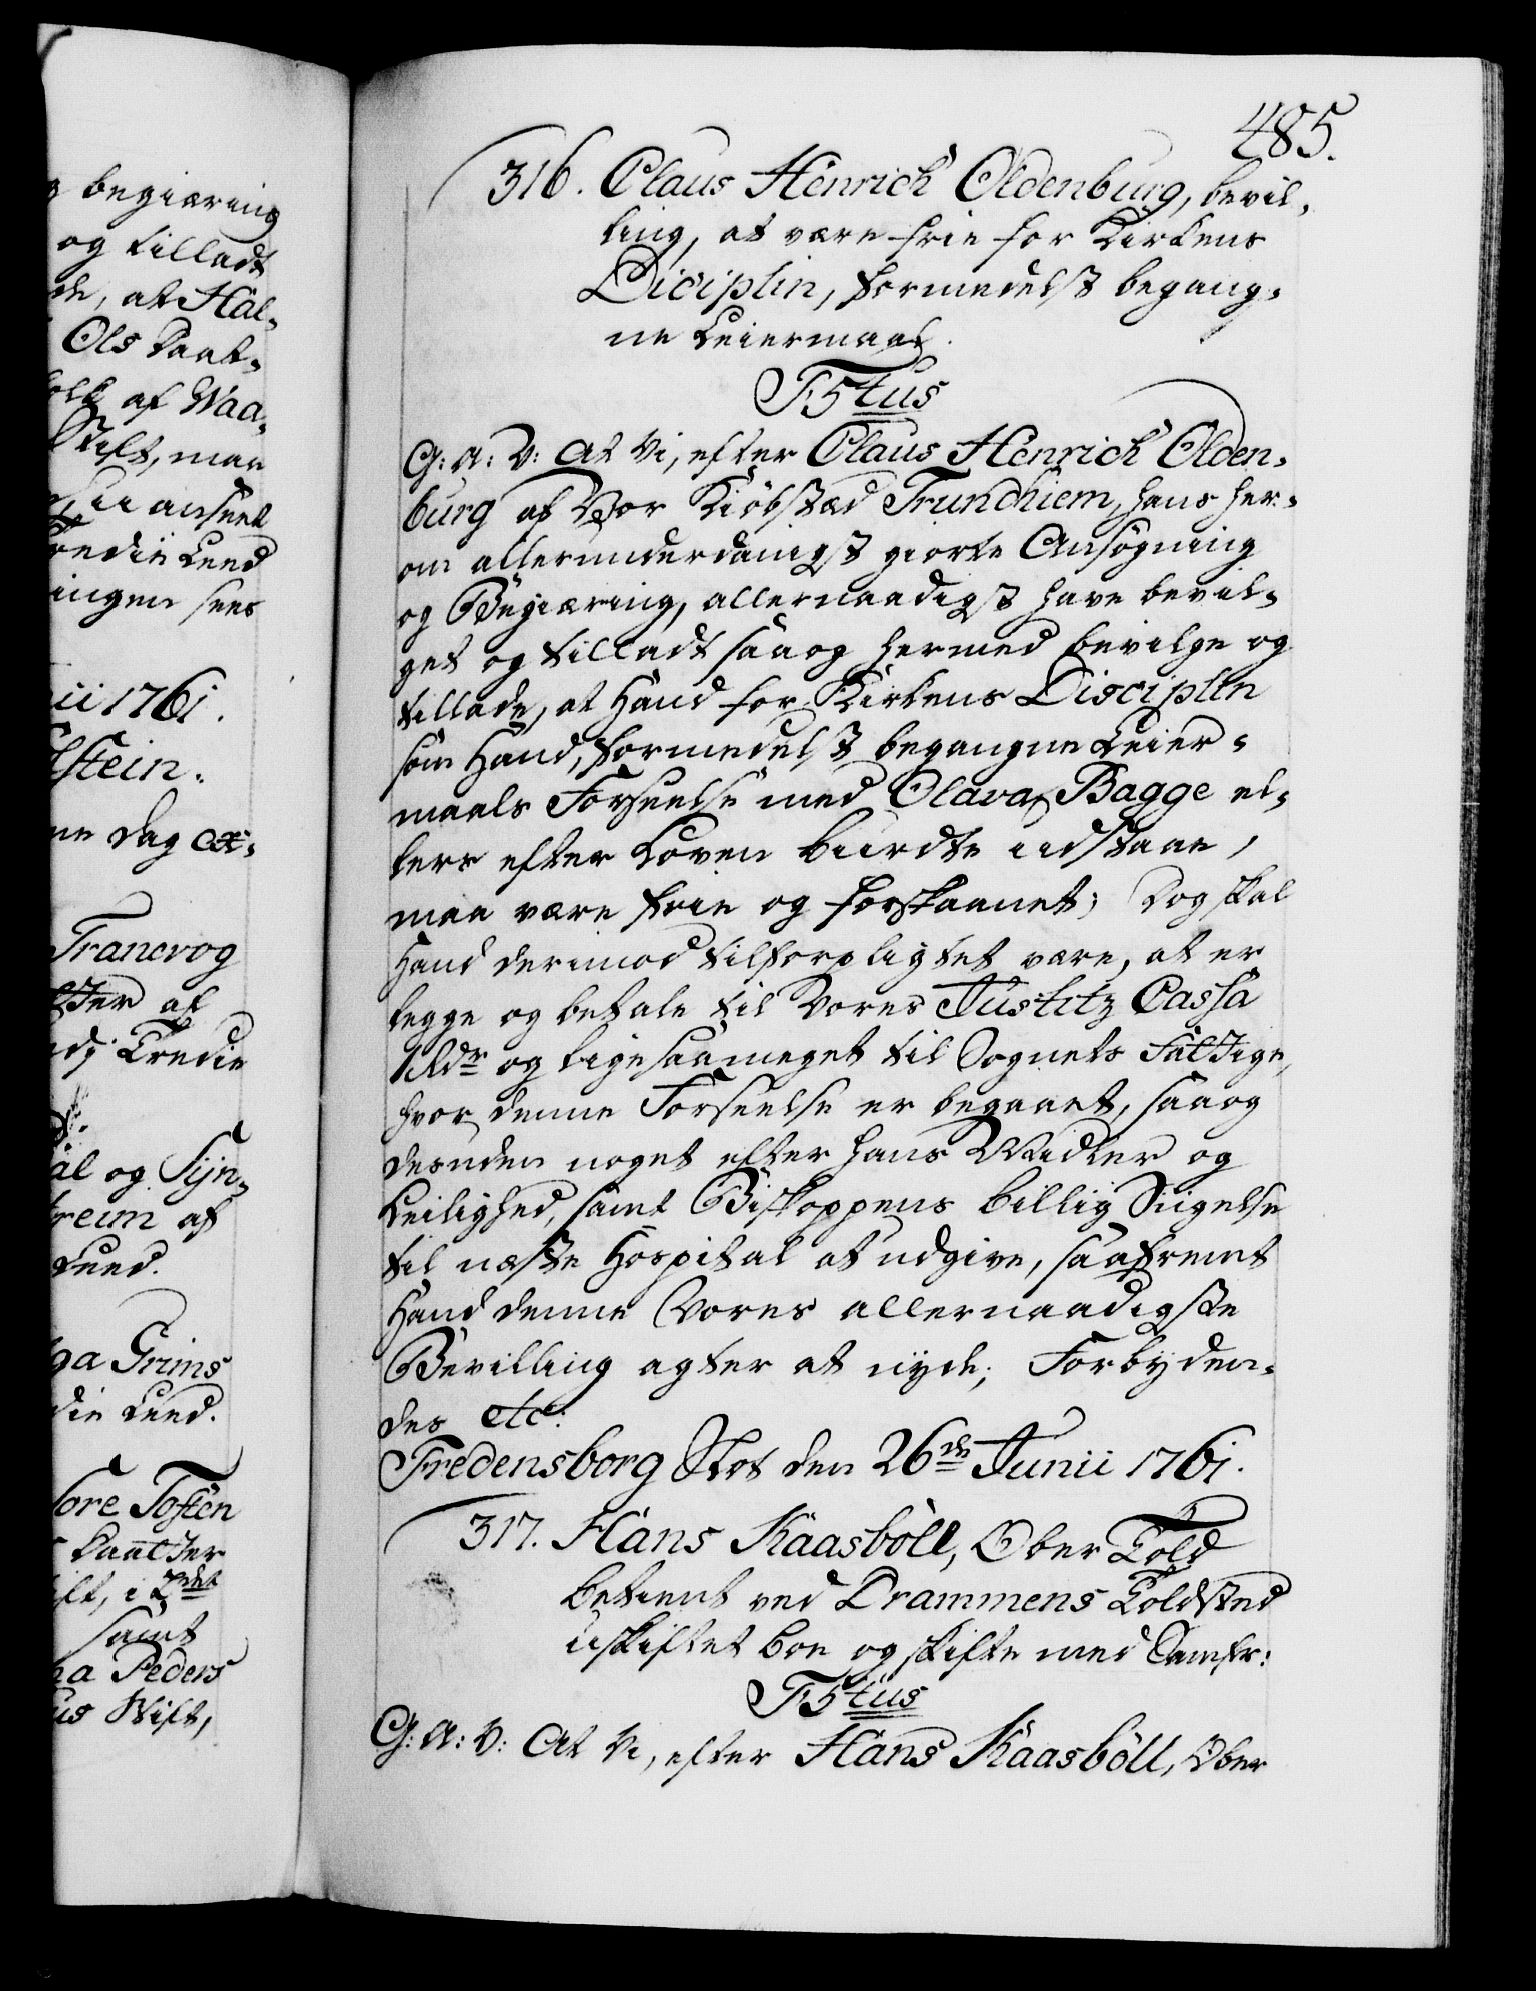 g begiæring
og tilladt
de, at Hal-
Ols Daat-
folk af Waa-
Stift, maa
anseet
Tredie Leed
ingen sees
ii 1761.
Stein.
ne dag Ex-
Tranevog
tter af
Tredie
al og Sÿn-
reim af
Leed.
ga Grims
die Leed.
Tore Tosten
Daatter
ift, i 2det
samt
na Peders
us Stift,
485.
316. Claus Henrich Oldenburg, bevil-
ling, at være frie for Kirkens
Diciplin, formedelst begang-
ne Leiermaal.
F5tus
G: A: V: At Vi, efter Claus Henrich Olden-
burg af Vor Kiöbstæd Trundhiem, hans her-
om allerunderdanigst giorte Ansøgning
og Begiæring, allernaadigst have bevil-
get og tilladt saaog hermed bevilge og
tillade, at Hand for Kirkens Disciplin
som Hand, formedelst begangne Leier-
maals Forseelse med Olava Bagge el-
lers efter Loven burdte udstaae,
maa være frie og forskaanet; Dog skal
Hand derimod tilforpligtet være, at er
legge og betale til Vores Justitz Cassa
1 Rdr og ligesaameget til Sognets Fattige,
hvor denne Forseelse er begaaet, saaog
desuden noget efter hans Midler og
Leilighed, samt Biskoppens billig Sigelse
til næste Hospital at udgive, saafremt
Hand denne Vores allernaadigste
Bevilling agter at nyde; Forbyden-
des etc:
Fredensborg Slot den 26de Junii 1761.
317. Hans Kaasböll, Ober Told
betient ved Drammens Toldsted
uskiftet boe og skifte med Samfr:
F5tus
G: A: V: At Vi, efter Hans Kaasböll, Ober